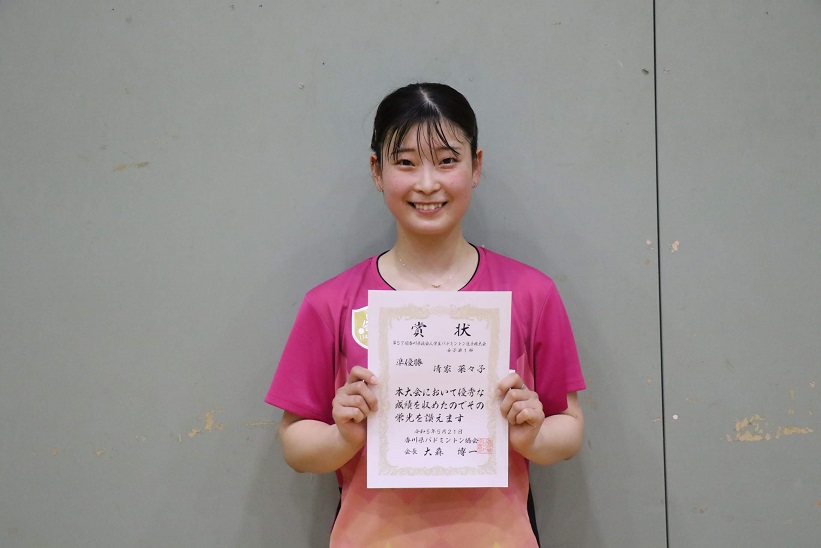 賞状
第57回香川県社会人学生バドミントン選手権大会
女子第1部
準優勝
清家 菜々子
本大会において優秀な
成績を収めたのでその
栄光を讃えます
令和5年5月21日
香川県バドミントン協会
会長 大森 博一